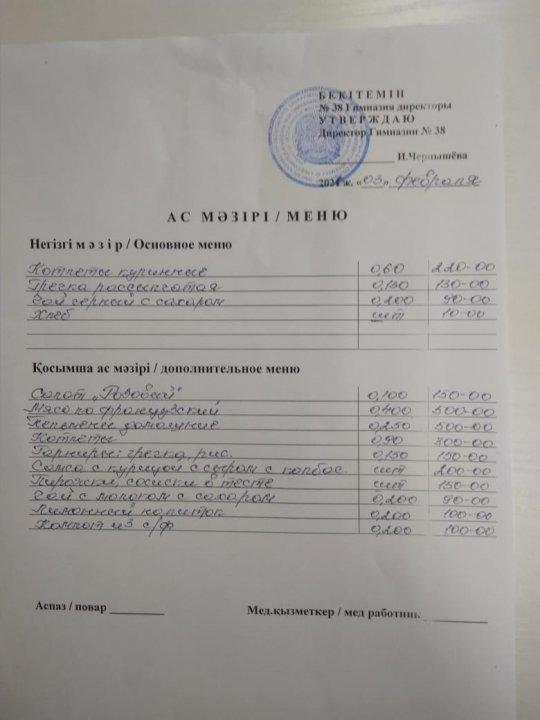 БЕКІТЕМІН
№ 38 Гимназия директоры
УТВЕРЖДАЮ
Директор Гимназии № 38
И.Чернышёва
2021 ж. «03» февраля
АС МӘЗІРІ / МЕНЮ
Негізгі мәзір / Основное меню
Котлеты куринные 0,60 220-00
Гречка рассыпчатая 0,150 150-00
Чай черный с сахаром 0,200 90-00
Хлеб шт 10-00
Қосымша ас мәзірі / дополнительное меню
Салат „Розовый" 0,100 150-00
Мясо по французский 0,400 500-00
Пельмени домашние 0,250 500-00
Котлеты 0,90 300-00
Гарниры: гречка, рис. 0,150 150-00
Самса с курицей с сыром с колбас. шт 200-00
Пирожки, сосиски в тесте шт 150-00
Чай с молоком с сахаром 0,200 90-00
Лимонный напиток 0,200 100-00
Компот из с/ф 0,200 100-00
Аспаз / повар Мед.қызметкер / мед работник